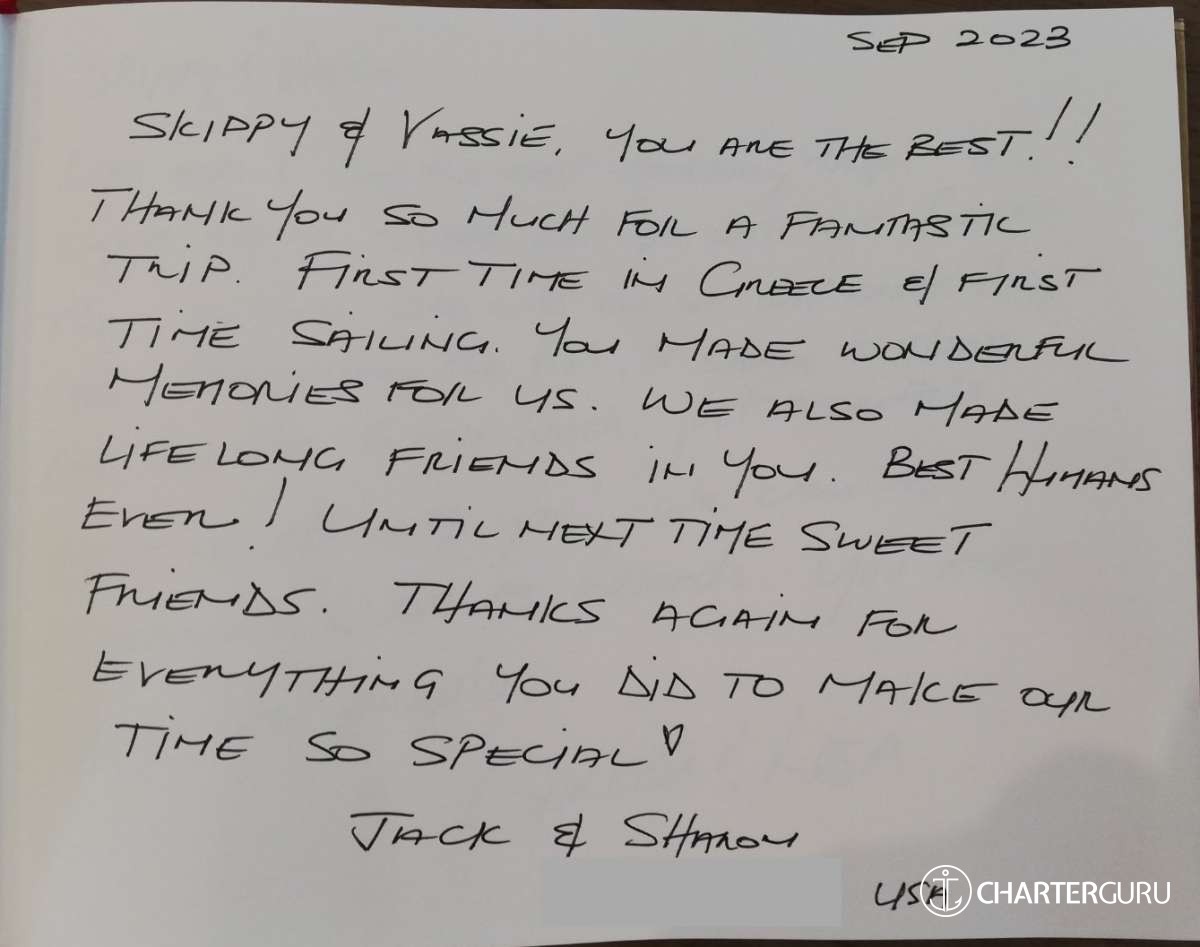 SEP 2023
SKIPPY & VASSIE, YOU ARE THE BEST!!
THANK YOU SO MUCH FOR A FANTASTIC
TRIP. FIRST TIME IN GREECE & FIRST
TIME SAILING. YOU MADE WONDERFUL
MEMORIES FOR US. WE ALSO MADE
LIFELONG FRIENDS IN YOU. BEST HUMANS
EVER! UNTIL NEXT TIME SWEET
FRIENDS. THANKS AGAIN FOR
EVERYTHING YOU DID TO MAKE OUR
TIME SO SPECIAL ♡
JACK & SHARON
USA
CHARTERGURU